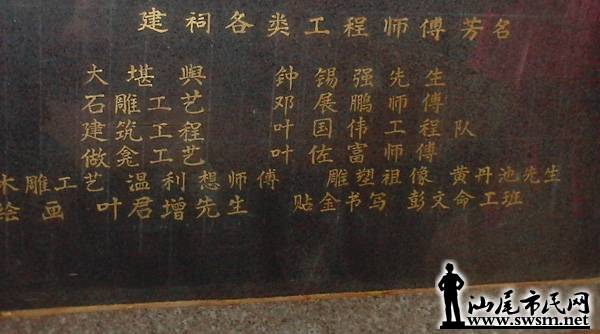 建祠各类工程师傅芳名
大堪舆 钟锡强先生
石雕工艺 邓展鹏师傅
建筑工程 叶国伟工程队
做龛工艺 叶佐富师傅
木雕工艺 温利想师傅 雕塑祖像 黄丹池先生
绘画 叶君增先生 贴金书写 彭文命工班
汕尾市民网
www.swsm.net